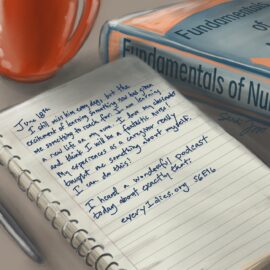 Fundamentals
of
Fundamentals of Nu
June 18th
I still miss him every day, but the
excitement of learning something new has given
me something to reach for. I am learning
a new life on my own. I love my classmates
and think I will be a fantastic nurse!
My experiences as a caregiver really
taught me something about myself.
I can do this!
I heard a wonderful podcast
today about exactly that.
every1dies.org S6E16